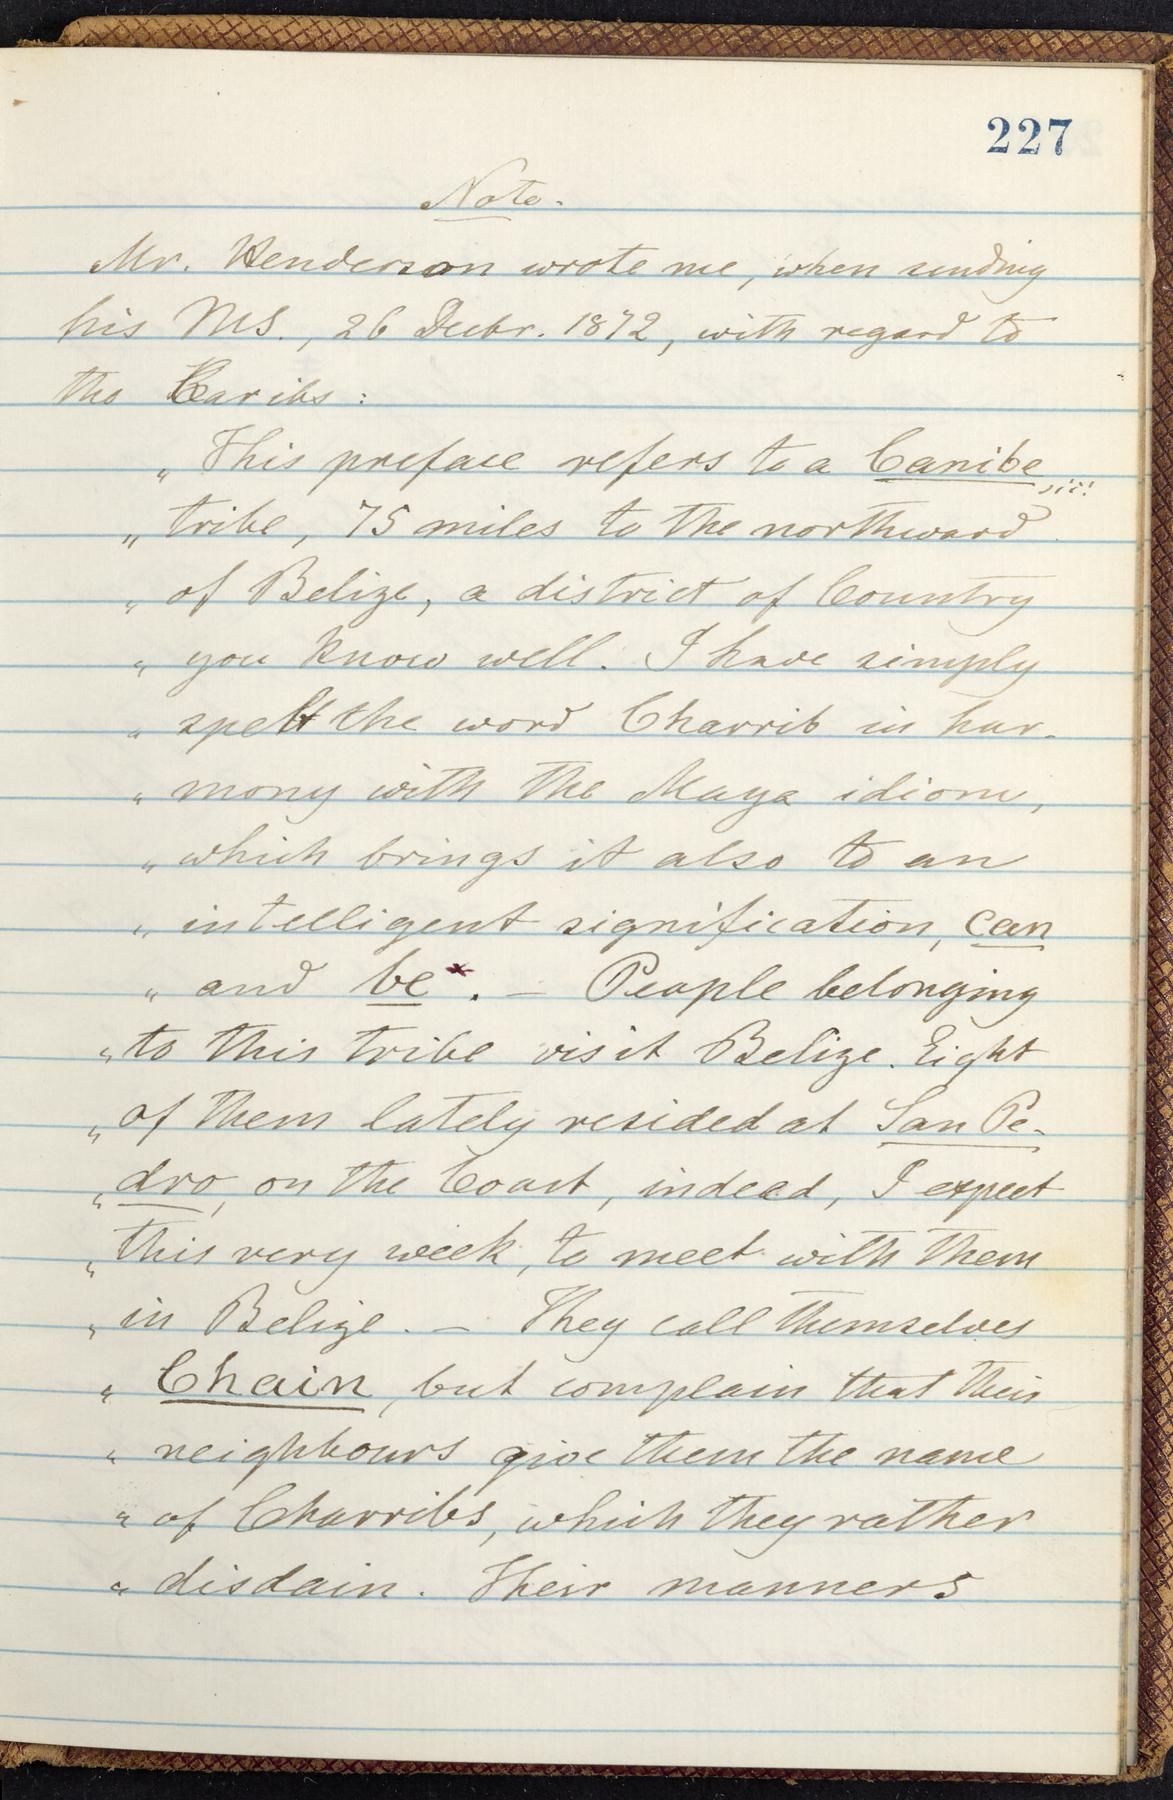 227
Note.
Mr. Henderson wrote me, when sending
his MS., 26 Decbr. 1872, with regard to
the Caribs:
„ This preface refers to a Canibe
„ tribe, 75 miles to the northward
„ of Belize, a district of Country
„ you know well. I have simply
„ spelt the word Charrib in har-
„ mony with the Maya idiom,
„ which brings it also to an
„ intelligent signification, can
„ and be*. — People belonging
„ to this tribe visit Belize. Eight
„ of them lately resided at San Pe-
„ dro, on the Coast, indeed, I expect
„ this very week, to meet with them
„ in Belize. — They call themselves
„ Chain, but complain that their
„ neighbours give them the name
„ of Charribs, which they rather
„ disdain. Their manners